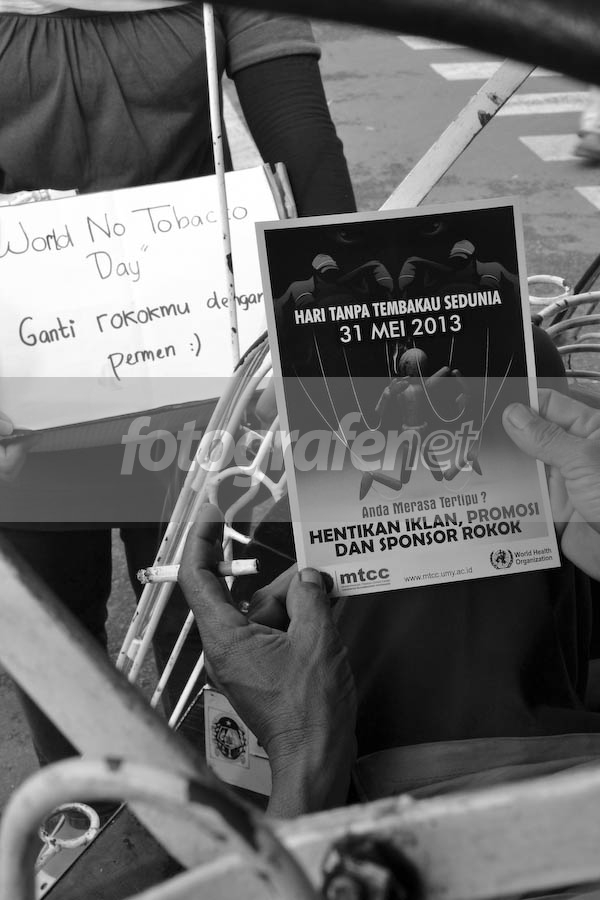 "World No Tobacco
Day"
Ganti rokokmu dengan
permen :)
HARI TANPA TEMBAKAU SEDUNIA
31 MEI 2013
fotografenet
Anda Merasa Tertipu ?
HENTIKAN IKLAN, PROMOSI
DAN SPONSOR ROKOK
mtcc
www.mtcc.umy.ac.id
World Health
Organization